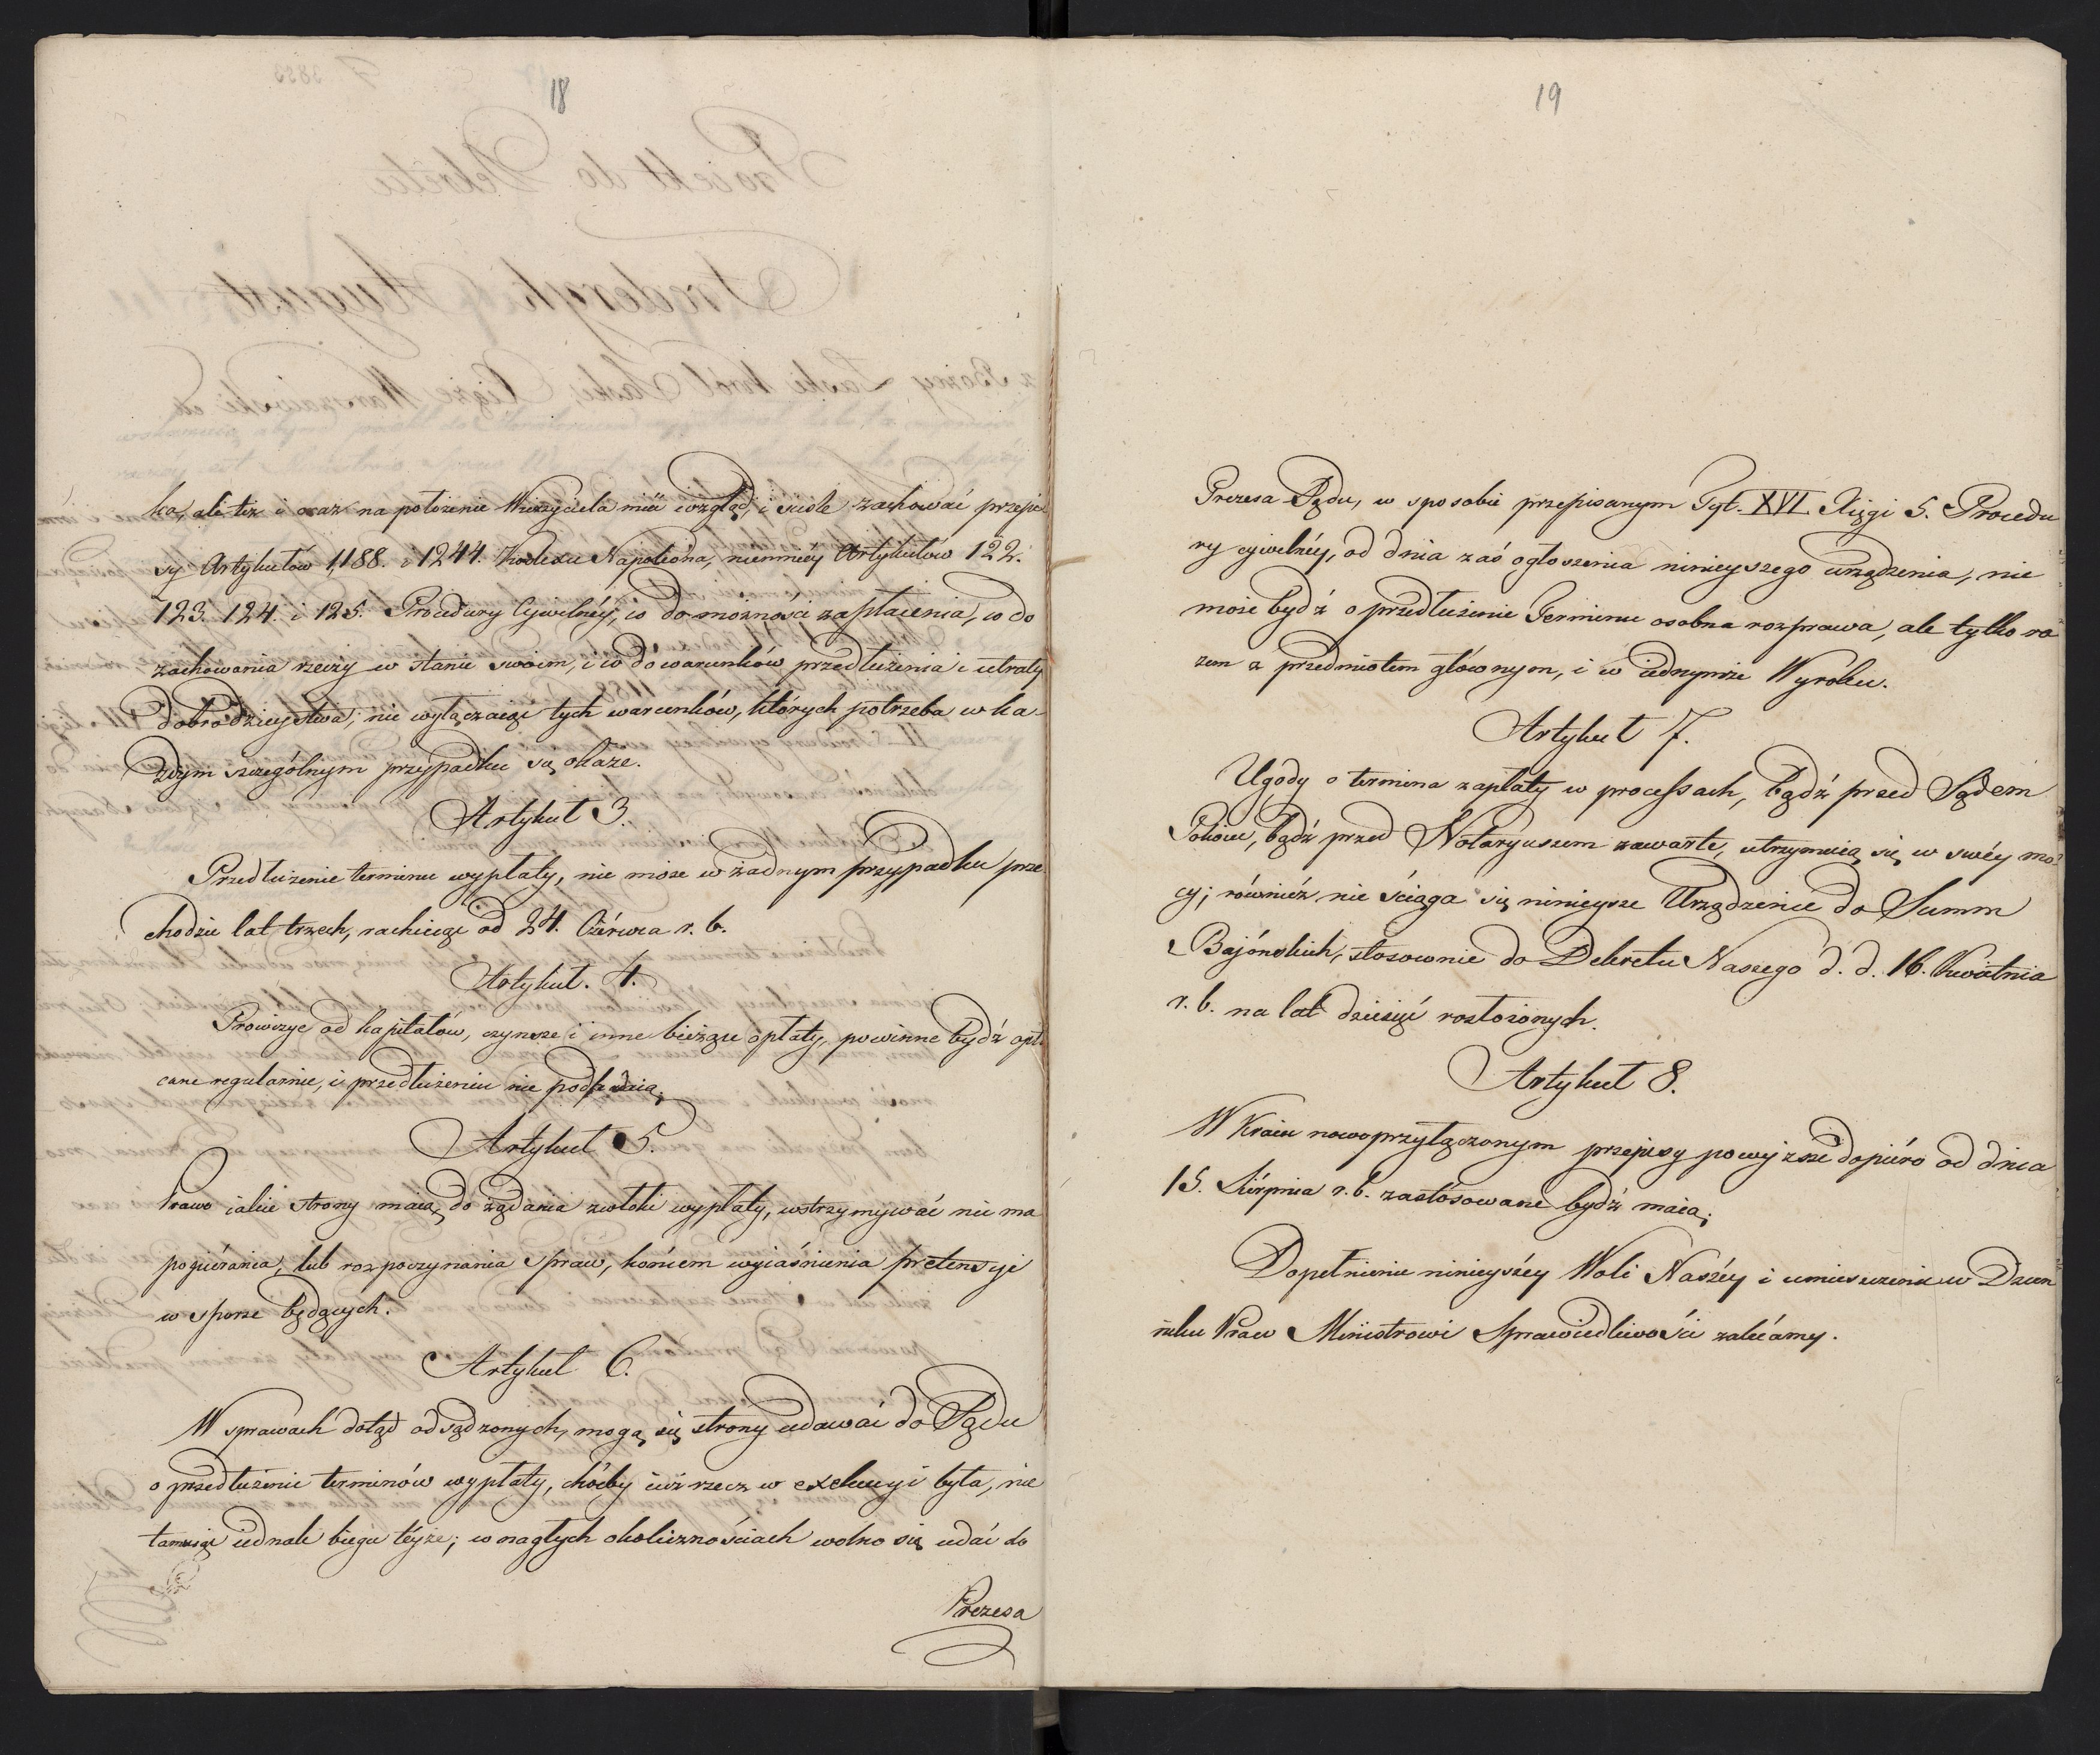 18
ka, ale też i oraz na położenie Wierzyciela mieć wzgląd, i ściśle zachować przepi
sy Artykułów 1,188. i 1244. Kodexu Napoleóna, niemniéy Artykułów 122.
123. 124. i 125. Procedury Cywilnéy, co do możności zapłacenia, co do
zachowania rzeczy w stanie swoim, i co do warunków przedłużenia i utraty
dobrodzieystwa; nie wyłączaiąc tych warunków, których potrzeba w ka-
żdym szczególnym przypadku się okaże.
Artykuł 3.
Przedłużenie terminu wypłaty, nie może w żadnym przypadku prze
chodzić lat trzech, rachuiąc od 24. Czérwca r. b.
Artykuł. 4.
Prowizye od kapitałów, czynsze i inne bieżące opłaty, powinne bydź opła
cane regularnie, i przedłużeniu nie podpadaią.
Artykuł 5.
Prawo iakie strony maią do żądania zwłoki wypłaty, wstrzymywać nie ma
popiérania, lub rozpoczynania spraw, końcem wyiaśnienia pretensyi
w sporze będących.
Artykuł 6.
W sprawach dotąd odsądzonych, mogą się strony udawać do Sądu
o przedłużenie terminów wypłaty, choćby iuż rzecz w exekucyi była, nie
tamuiąc iednak biegu téyże; w nagłych okolicznościach wolno się udać do
Prezesa
19
Prezesa Sądu, w sposobie przepisanym Tyt. XVI Xięgi 5. Procedu
ry cywilnéy, od dnia zaś ogłoszenia ninieyszego urządzenia, nie
może bydź o przedłużenie Terminu osobna rozprawa, ale tylko ra
zem z przedmiotem głównym, i w iednymże Wyroku.
Artykuł 7.
Ugody o termina zapłaty w processach, bądź przed Sądem
Pokoiu, bądź przed Notaryuszem zawarte, utrzymuią się w swéy mo
cy; również nie ściąga się ninieysze Urządzenie do Summ
Bajónskich, stosownie do Dekretu Naszego d. d. 16. Kwietnia
r. b. na lat dziesięć rozłożonych.
Artykuł 8.
W Kraiu nowoprzyłączonym przepisy powyższe dopiéro od dnia
15. Siérpnia r. b. zastosowane bydź maią.
Dopełnienie ninieyszéy Woli Naszéy i umieszczenie w Dzien
niku Praw Ministrowi Sprawiedliwości zalécamy.